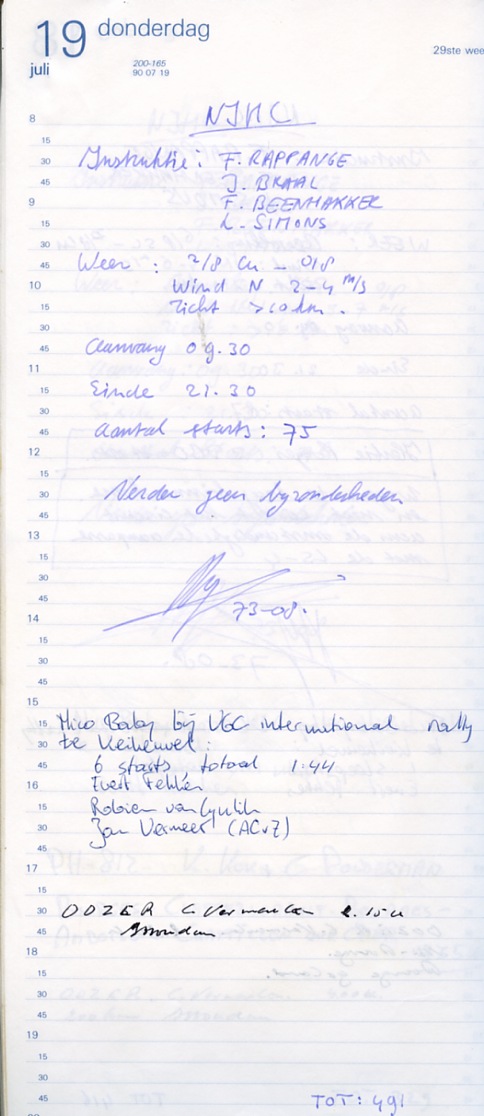 19 donderdag
juli
200-165
90 07 19
29ste wee
NJMC
8
15
Instruktie: F. RAPPANGE
30
J. BRAAL
45
F. BEENHAKKER
9
L. SIMONS
15
30
Weer : 2/8 Cu - 0/8
45
Wind N 2-4 m/s
10
Zicht >10 km.
15
30
Aanvang 09.30
45
11
Einde 21.30
15
30
aantal starts: 75
45
12
15
Verder geen byzonderheden
30
45
13
15
30
73-08.
45
14
15
30
45
15
Mico Baby bij VGC international rally
15
te Keiheuvel:
30
6 starts totaal 1.44
45
Evert
16
Robien van
15
Jan Vermeer (ACvZ)
30
45
17
15
OOZER
30
45
18
15
30
45
19
15
30
TOT: 491
45